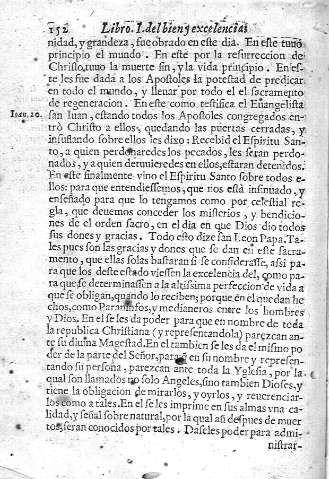 152 Libro. I. del bien y excelencias
nidad, y grandeza, fue obrado en este dia. En este tuuo
principio el mundo. En este por la resurreccion de
Christo, tuuo la muerte fin, y la vida principio. En es-
te les fue dada à los Apostoles la potestad de predicar
en todo el mundo, y lleuar por todo el el sacramento
de regeneracion. En este como testifica el Euangelista
Ioan. 20.
san Iuan, estando todos los Apostoles congregados en-
trò Christo a ellos, quedando las puertas cerradas, y
insuflando sobre ellos les dixo: Recebid el Espiritu San-
to, a quien perdonaredes los pecados, les seran perdo-
nados, y a quien detuuieredes en ellos, estaràn detenidos.
En este finalmente vino el Espiritu Santo sobre todos e-
llos: para que entendiessemos, que nos està insinuado, y
enseñado para que lo tengamos como por celestial re-
gla, que deuemos conceder los misterios, y bendicio-
nes de el orden sacro, en el dia en que Dios dio todos
sus dones y gracias. Todo esto dize san Leon Papa. Ta-
les pues son las gracias y dones que se dan en este sacra-
mento, que ellas solas bastaran si se considerasse, assi pa-
ra que los deste estado viessen la excelencia del, como pa-
ra que se determinassen a la altissima perfeccion de vida a
que se obligan, quando lo reciben; porque en el quedan he
chos, como Paraninfos, y medianeros entre los hombres
y Dios. En el se les da poder para que en nombre de toda
la republica Christiana (y representandola) parezcan an-
te su diuina Magestad. En el tambien se les da el mismo po
der de la parte del Señor, para q̃ en su nombre y represen-
tando su persona, parezcan ante toda la Yglesia, por la
qual son llamados no solo Angeles, sino tambien Dioses, y
tiene la obligacion de mirarlos, y oyrlos, y reuerenciar-
los como a tales. En el se les imprime en sus almas vna ca-
lidad, y señal sobrenatural, por la qual aũ despues de muer
tos, seran conocidos por tales. Daseles poder para admi-
nistrar-